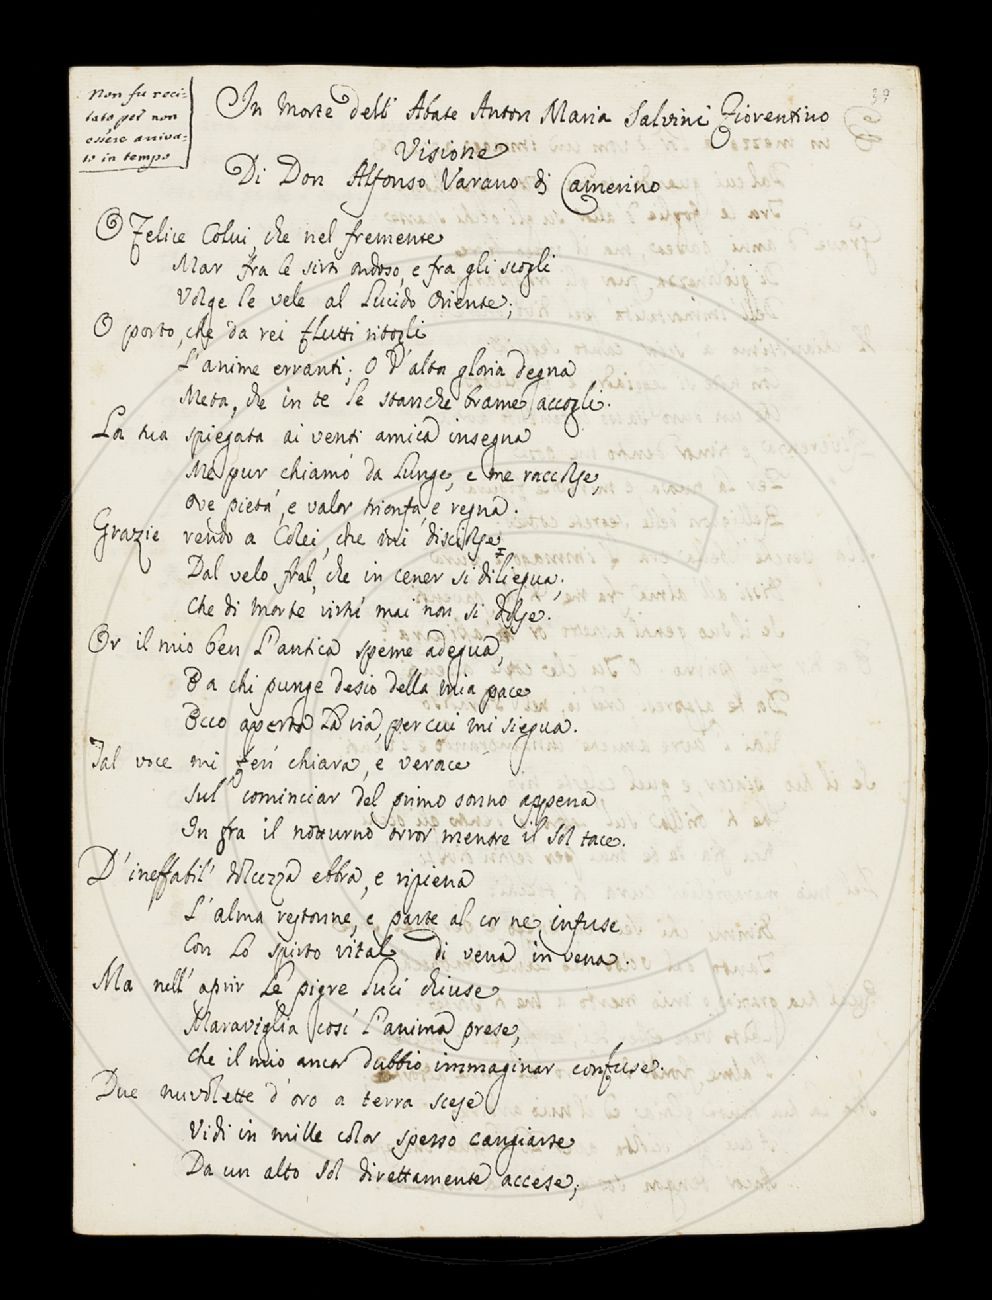 39
Non fu reci-
tato per non
essere ariva-
to in tempo
In Morte dell' Abate Anton Maria Salvini Fiorentino
Visione
Di Don Alfonso Varano di Camerino
O Felice Colui, che nel fremente
Mar fra le sirti ondoso, e fra gli scogli
Volge le vele al Lucido Oriente;
O porto, che da rei flutti ritogli
L'anime erranti; O d'alta gloria degna
Meta, che in te le stanche brame accogli.
La tua spiegata ai venti amica insegna
Me pur chiamò da Lunge, e me raccolse,
Ove pietà, e valor trionfa e regna.
Grazie rendo a Colei, che mi disciolse
Dal velo fral, che in cener si dilegua;
Che di Morte virtù mai non si dolse.
Or il mio ben L'antica speme adegua,
E a chi punge desio della mia pace
Ecco aperta La via, per cui mi siegua.
Tal voce mi ferì chiara, e verace
Sul' cominciar del primo sonno appena
In fra il notturno orror mentre il Sol tace.
D'ineffabil' dolcezza ebbra, e ripiena
L'alma restonne, e parte al cor ne infuse
Con Lo spirto vital di vena in vena.
Ma nell' aprir Le pigre Luci chiuse
Maraviglia così L'anima prese,
Che il mio ancor dubbio immaginar confuse.
Due nuvolette d'oro a terra scese
Vidi in mille color spesso cangiarse
Da un alto Sol direttamente accese;